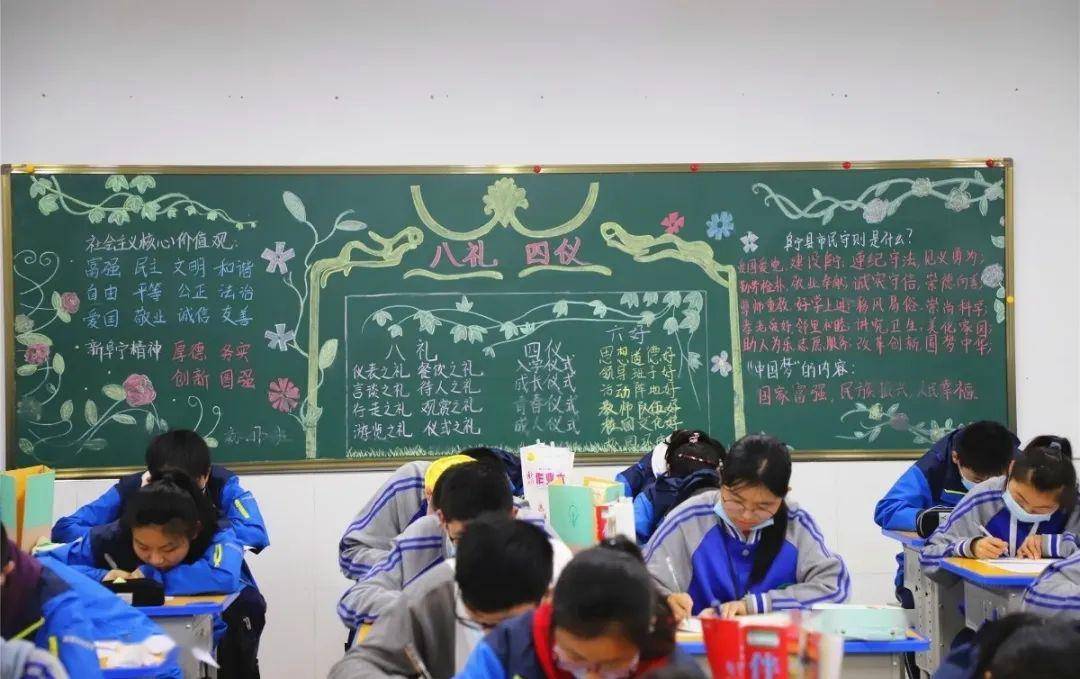 社会主义核心价值观:
富强 民主 文明 和谐
自由 平等 公正 法治
爱国 敬业 诚信 友善
新阜宁精神 厚德 务实
创新 图强
八礼 四仪
八礼
仪表之礼 餐饮之礼
言谈之礼 待人之礼
行走之礼 观赏之礼
游览之礼 仪式之礼
四仪
入学仪式
成长仪式
青春仪式
成人仪式
六好
思想道德好
领导班子好
活动阵地好
教师队伍好
校园文化好
阜宁县市民守则是什么?
爱国爱党,建设阜宁;遵纪守法,见义勇为;
勤劳俭朴,敬业奉献;诚实守信,崇德向善;
尊师重教,好学上进;移风易俗,崇尚科学;
孝老爱亲,邻里和睦;讲究卫生,美化家园;
助人为乐,志愿服务;改革创新,圆梦中华;
"中国梦"的内容:
国家富强,民族振兴,人民幸福.
作业本
伴